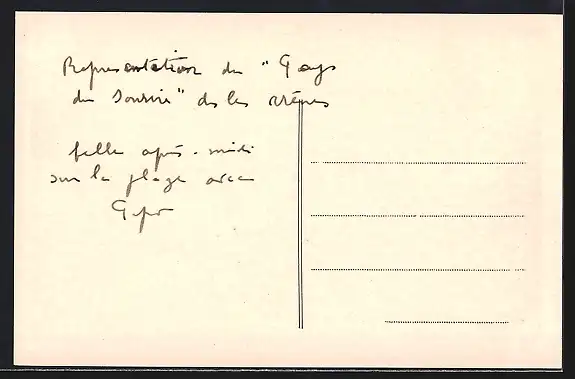 Représentation du "Pays
du Sourire" ds les arènes
belle après-midi
sur la plage avec